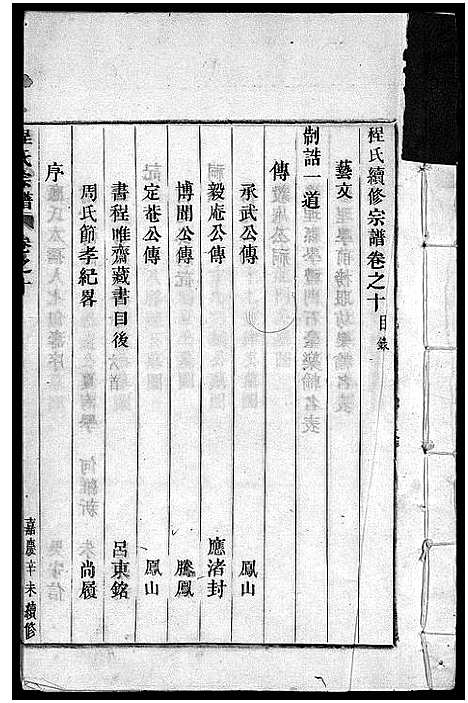 程氏續修宗譜卷之十目錄
藝文
制誥一道
傳
承武公傳 鳳山
毅庵公傳 應渚封
博聞公傳 騰鳳
定菴公傳 鳳山
書程唯齋藏書目後 呂東銘
周氏節孝紀畧 尚履
序
程氏宗譜 卷之十 嘉慶辛未續修